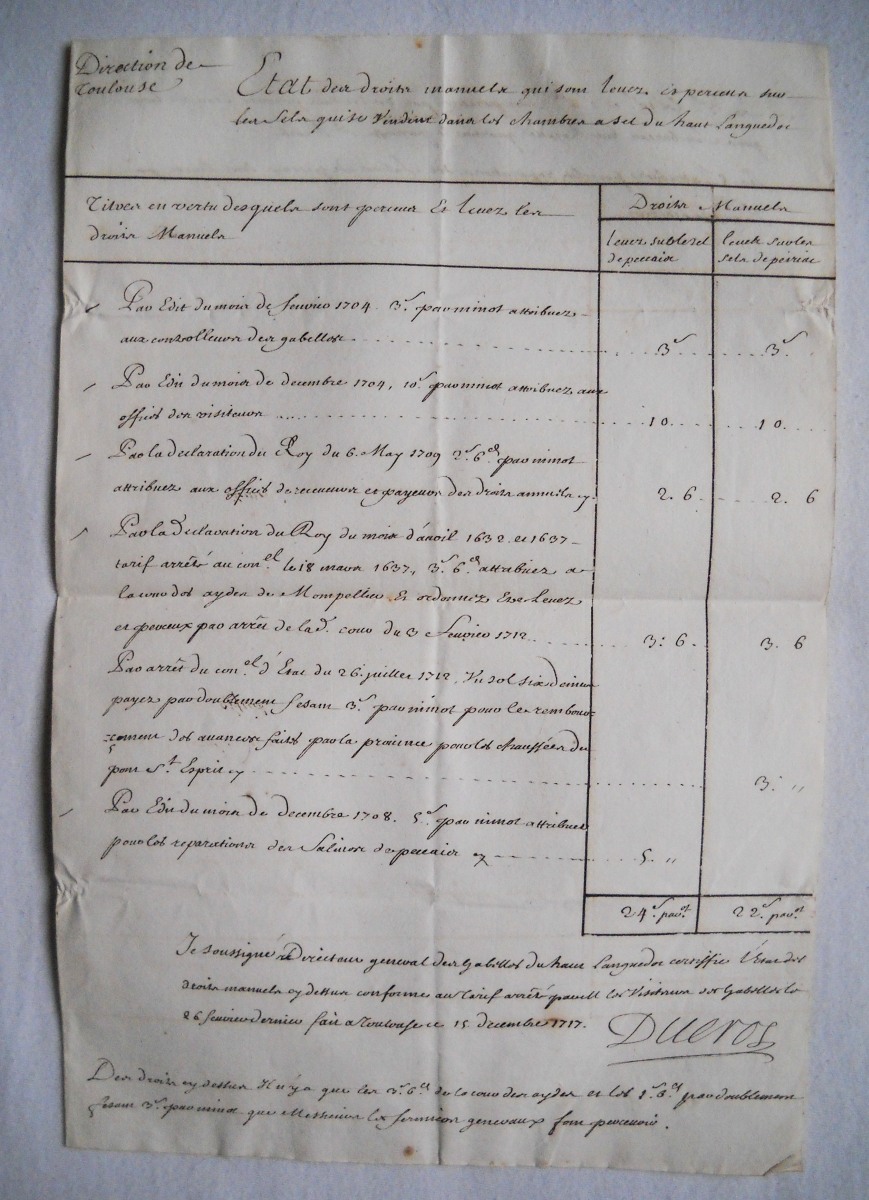 Direction de
Toulouse
Etat des droits manuels qui sont levez et perceus sur
les sels qui se vendent dans les chambres a sel du haut Languedoc
Titres en vertu desquels sont perceus et levez les
droits Manuels
Droits Manuels
levez sur le sel
de peccaix
levez sur les
sels de peiriac
Par Edit du mois de fevrier 1704. 3s. par minot attribuez
aux controlleurs des gabelles
3s
3s
Par Edit du mois de decembre 1704, 10s. par minot attribuez aux
offices des visiteurs
10
10
Par la declaration du Roy du 6. May 1709 2s. 6d. par minot
attribuez aux offices de receveurs et payeurs des droits manuels cy
2. 6
2. 6
Par la Declaration du Roy du mois d'avril 1632. et 1637
tarif arrêté au conel. le 18 mars 1637, 3s. 6d. attribuez a
la cour des aydes de Monpellier Et ordonnez Estre Levez
et perceux par arrêt de lad. cour du 3 fevrier 1712
3: 6.
3. 6
Par arrêt du conel. d'Etat du 26. juillet 1712, Un sol six deniers
payez par doublement fesant 3s. par minot pour le rembour
cement des avances faites par la province pour les chaussées du
pont St. Esprit cy
3. "
Par Edit du mois de decembre 1708. 5s. par minot attribuez
pour les reparations des Salines de peccaix cy
5. "
24s. par mt
22s. par mt
Je soussigné Directeur general des Gabelles du haut Languedoc certiffie l'Etat des
droits manuels cy dessus conforme au tarif arrêté par Mrs les Visiteurs des Gabelles le
26 fevrier dernier fait a Toulouse ce 15 decembre 1717.
Ducros
Des droits cy dessus Il n'y a que les 3s. 6d. de la cour des aydes et les 1s. 6d. par doublement
fesant 3s. par minot que Messieurs les fermiers generaux font percevoir.